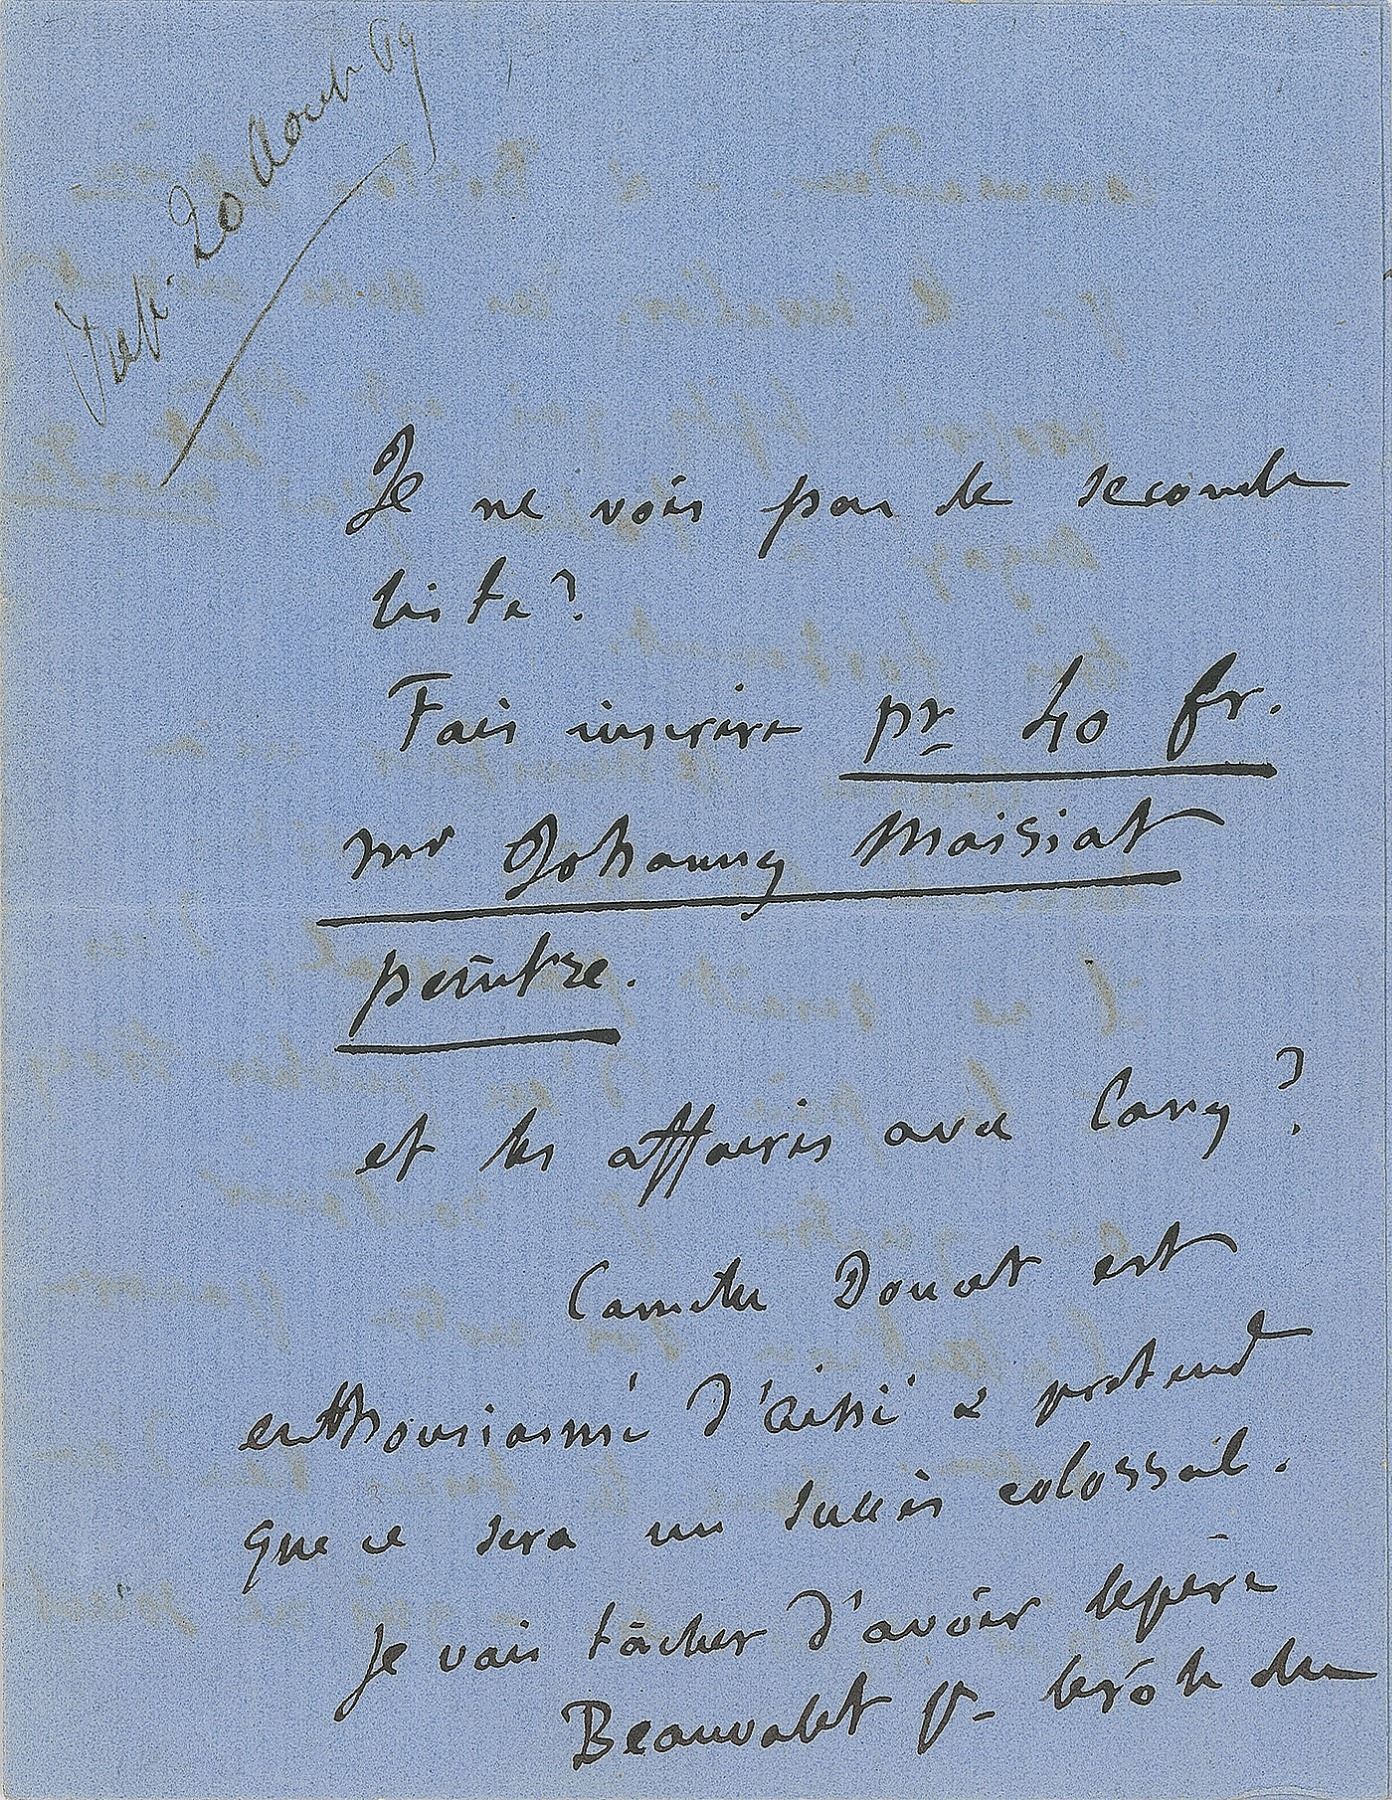 20 Aout 69
Je ne vois pas la seconde
liste?
Fais inscrire pr 40 fr.
mr Johanny Maisiat
peintre.
et les affaires avec Cany?
Camille Doucet est
enthousiasmé d'aïssé & prétend
que ce sera un succès colossal.
Je vais tâcher d'avoir le père
Beauvalet pr le rôle du